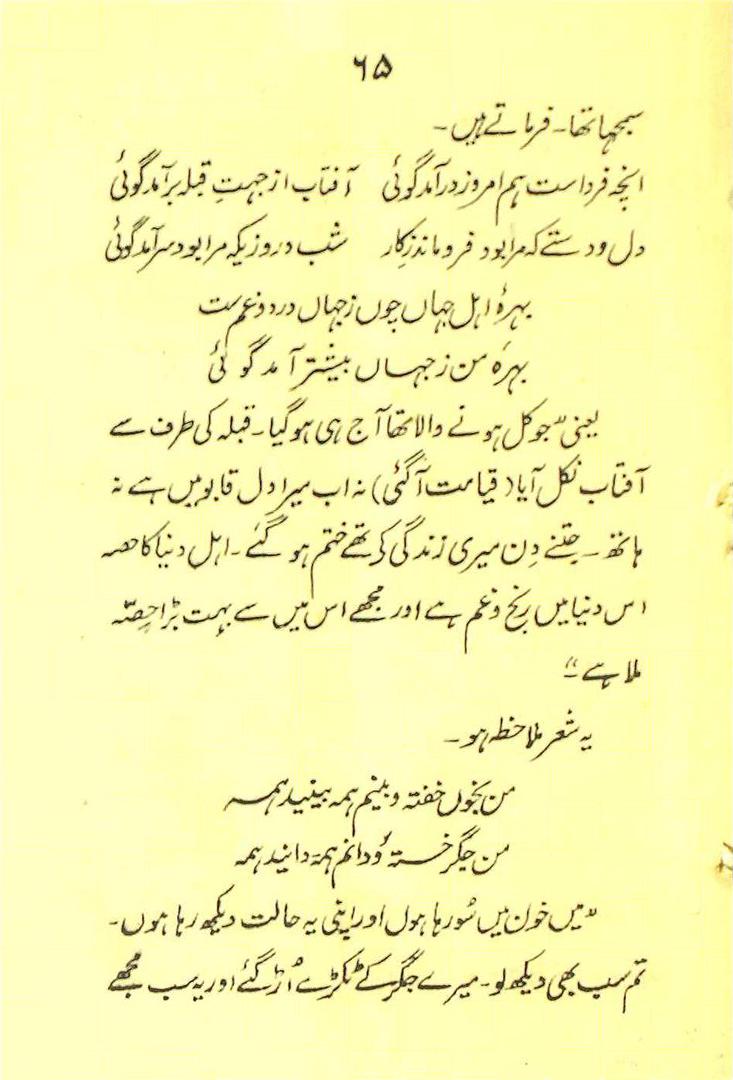 ۶۵
سمجھا تھا۔ فرماتے ہیں۔
انچہ فرداست ہم امروز درآمد گوئی آفتاب از جہتِ قبلہ برآمد گوئی
دل و دستے کہ مرا بود فروماند زکار شب و روزیکہ مرا بود سرآمد گوئی
بہرۂ اہل جہاں چوں ز جہاں درد و غم ست
بہرۂ من ز جہاں بیشتر آمد گوئی
یعنی "جو کل ہونے والا تھا آج ہی ہو گیا۔ قبلہ کی طرف سے
آفتاب نکل آیا (قیامت آگئی) نہ اب میرا دل قابو میں ہے نہ
ہاتھ۔ جتنے دِن میری زندگی کے تھے ختم ہو گئے۔ اہل دنیا کا حصہ
اس دنیا میں رنج و غم ہے اور مجھے اس میں سے بہت بڑا حِصّہ
ملا ہے"۔
یہ شعر ملاحظہ ہو۔
من بخوں خفتہ و بینم ہمہ بینید ہمہ
من جگر خستہ و دانم ہمہ دانید ہمہ
"میں خون میں سُو رہا ہوں اور اپنی یہ حالت دیکھ رہا ہوں۔
تم سب بھی دیکھ لو۔ میرے جگر کے ٹکڑے اُڑ گئے اور یہ سب مجھے